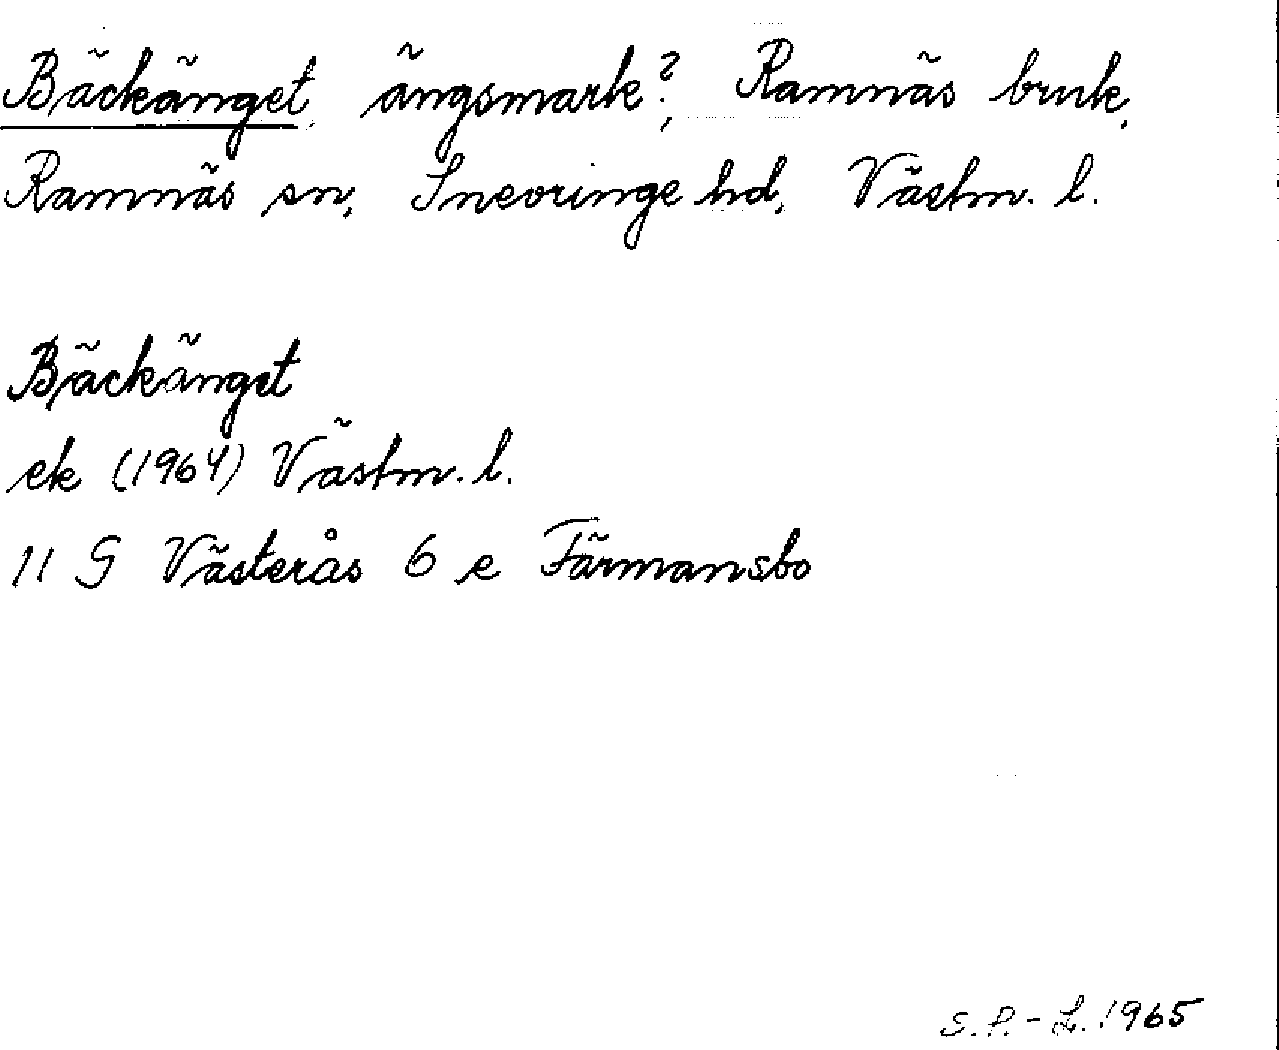 Bäckänget, ängsmark?, Ramnäs bruk,
Ramnäs sn, Snevringe hd, Västm. l.
Bäckänget
ek (1964) Västm. l.
11 G Västerås 6 e Färmansbo
S.P.-L. 1965